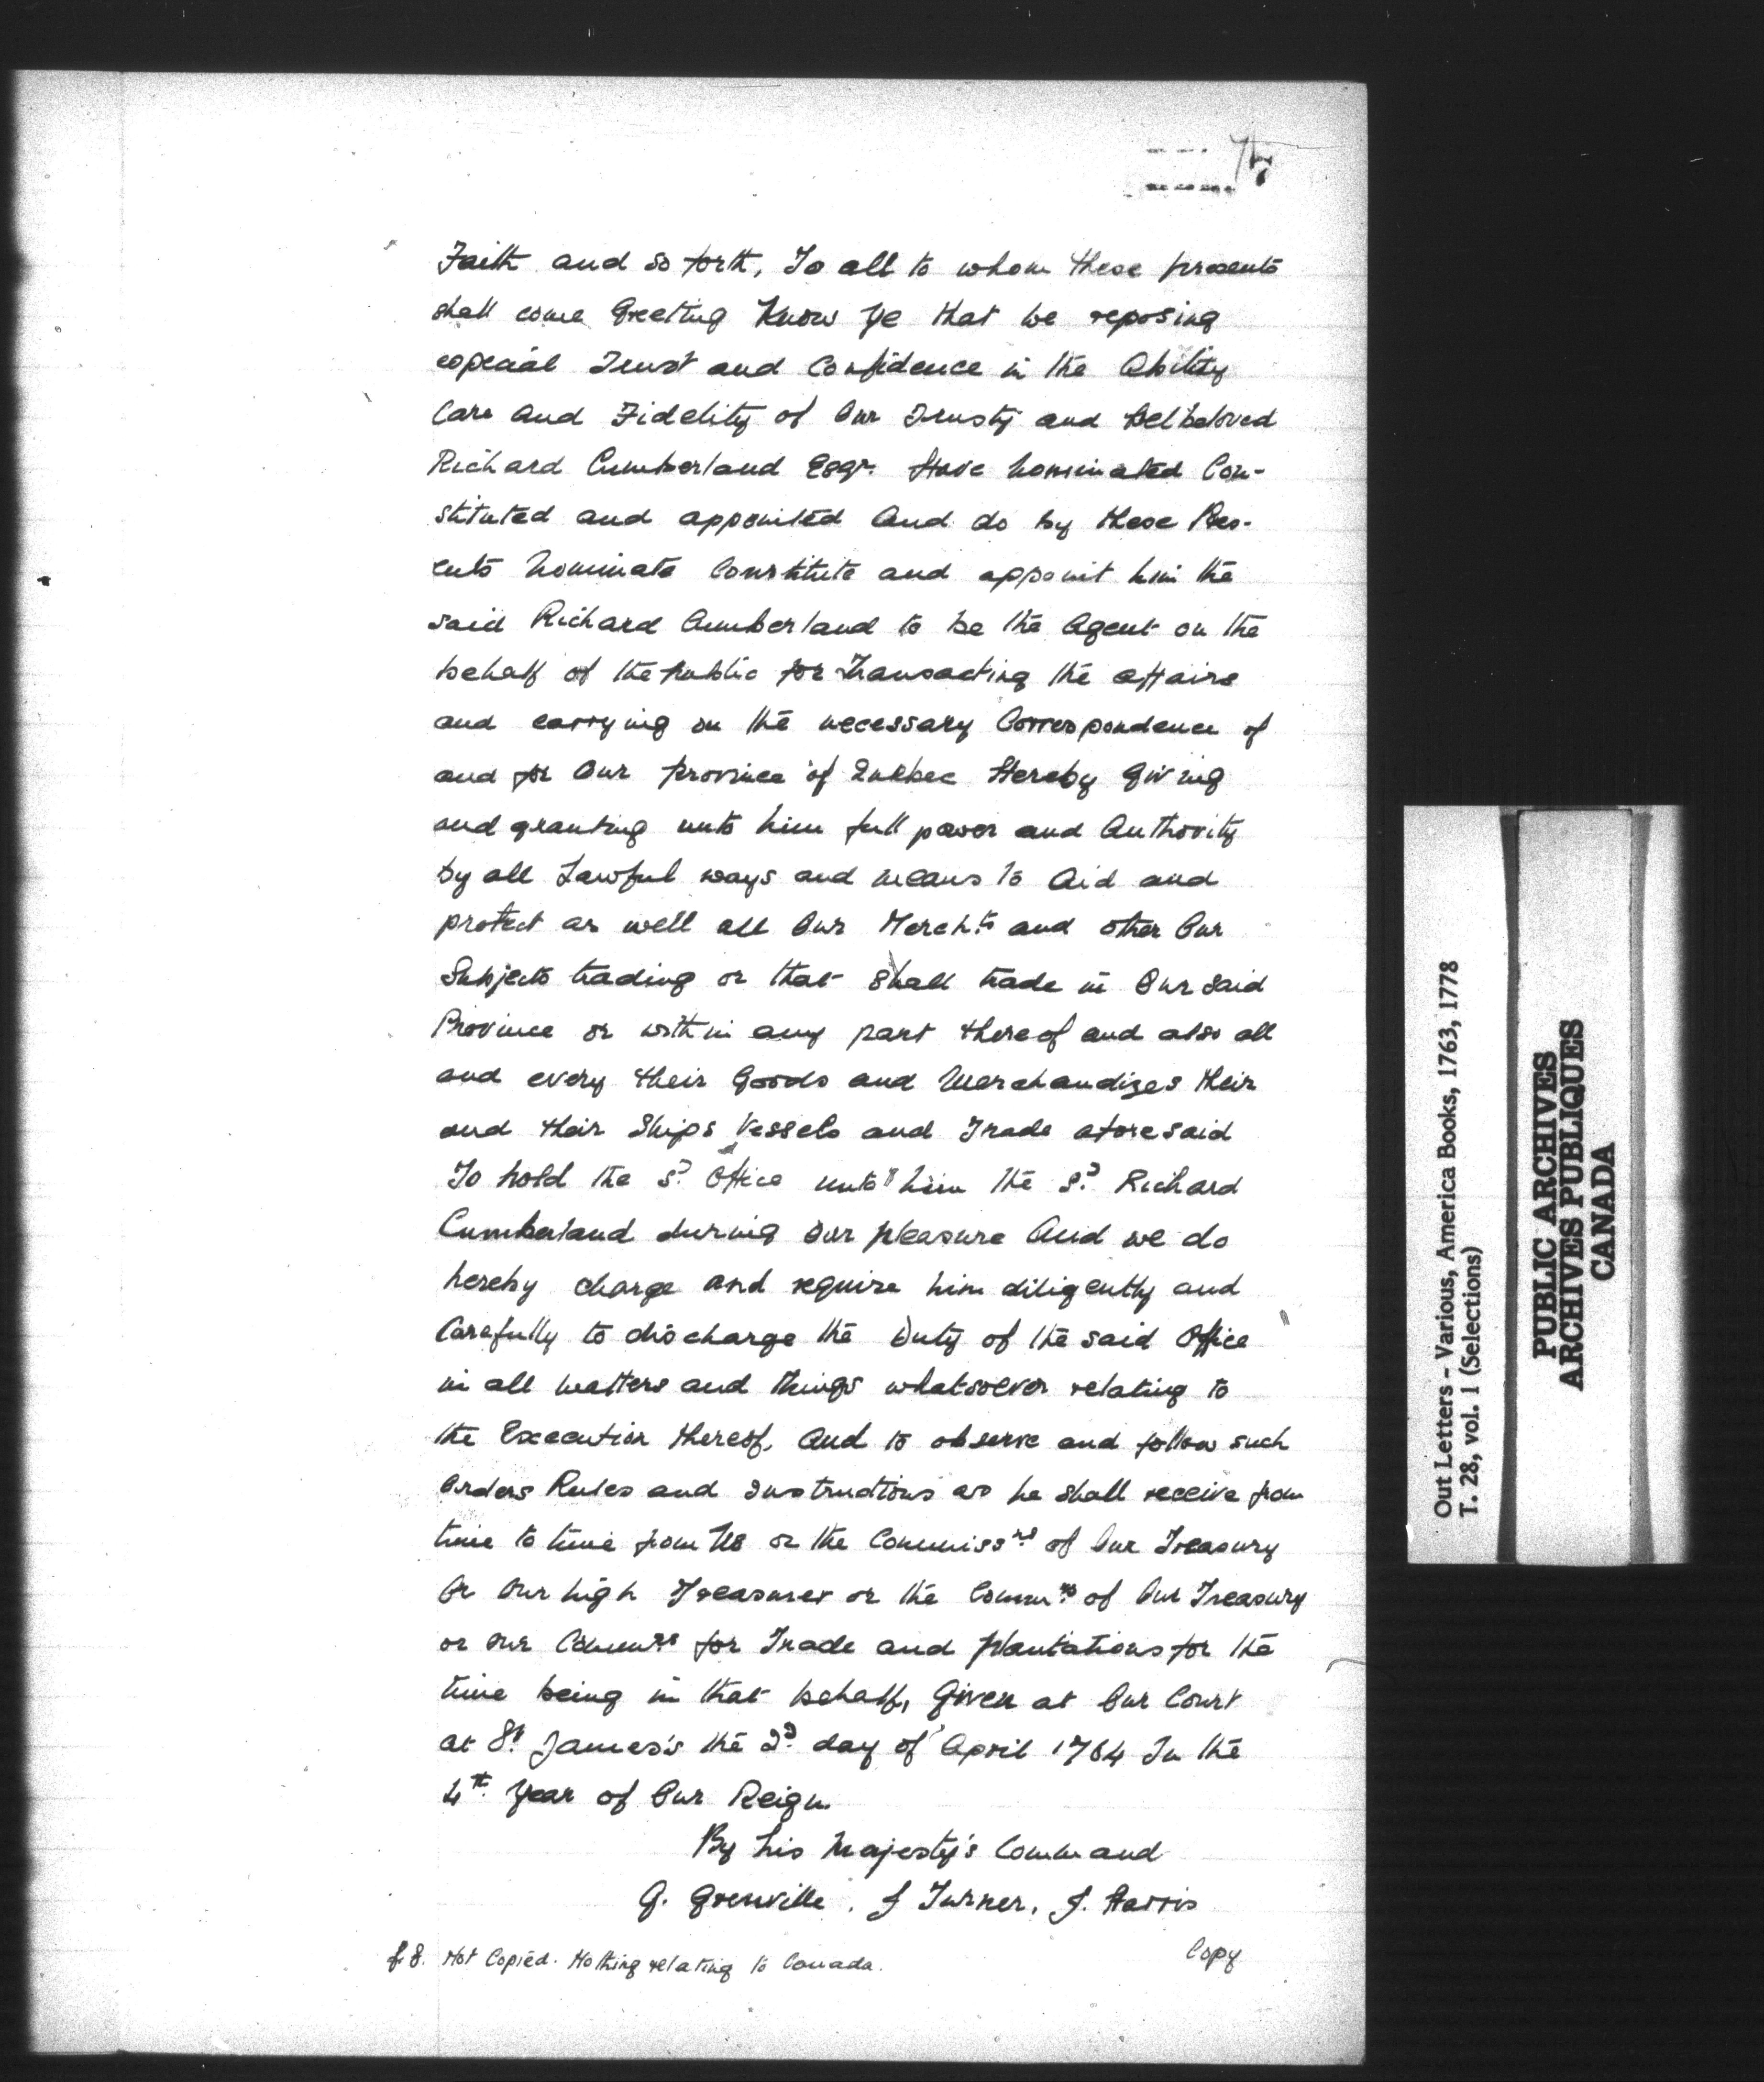 Faith and so forth, To all to whom these presents
shall come Greeting Know ye that we reposing
especial Trust and Confidence in the Ability
Care and Fidelity of Our Trusty and Welbeloved
Richard Cumberland Esqr. Have nominated Con-
stituted and appointed And do by these Pres-
ents Nominate Constitute and appoint him the
said Richard Cumberland to be the Agent on the
behalf of the public for Transacting the affairs
and carrying on the necessary Correspondence of
and for Our province of Quebec Hereby Giving
and granting unto him full power and Authority
by all Lawful ways and means to Aid and
protect as well all Our Merch.ts and other Our
Subjects trading or that shall trade in Our said
Province or within any part thereof and also all
and every their Goods and Merchandizes their
and their Ships Vessels and Trade aforesaid
To hold the s.d Office unto him the s.d Richard
Cumberland during our pleasure And we do
hereby charge and require him diligently and
Carefully to discharge the Duty of the said Office
in all matters and things whatsoever relating to
the Execution thereof, And to observe and follow such
Orders Rules and Instructions as he shall receive from
time to time from Us or the Commiss.rs of Our Treasury
Or Our high Treasurer or the Comm.rs of Our Treasury
or our Comm.rs for Trade and plantations for the
time being in that behalf, Given at Our Court
at S.t James's the 2.d day of April 1764 In the
4.th Year of Our Reign.
By his Majesty's Command
G. Grenville, J Turner, J. Harris
Copy
f. 8. Not Copied. Nothing relating to Canada.
Out Letters - Various, America Books, 1763, 1778
T. 28, vol. 1 (Selections)
PUBLIC ARCHIVES
ARCHIVES PUBLIQUES
CANADA